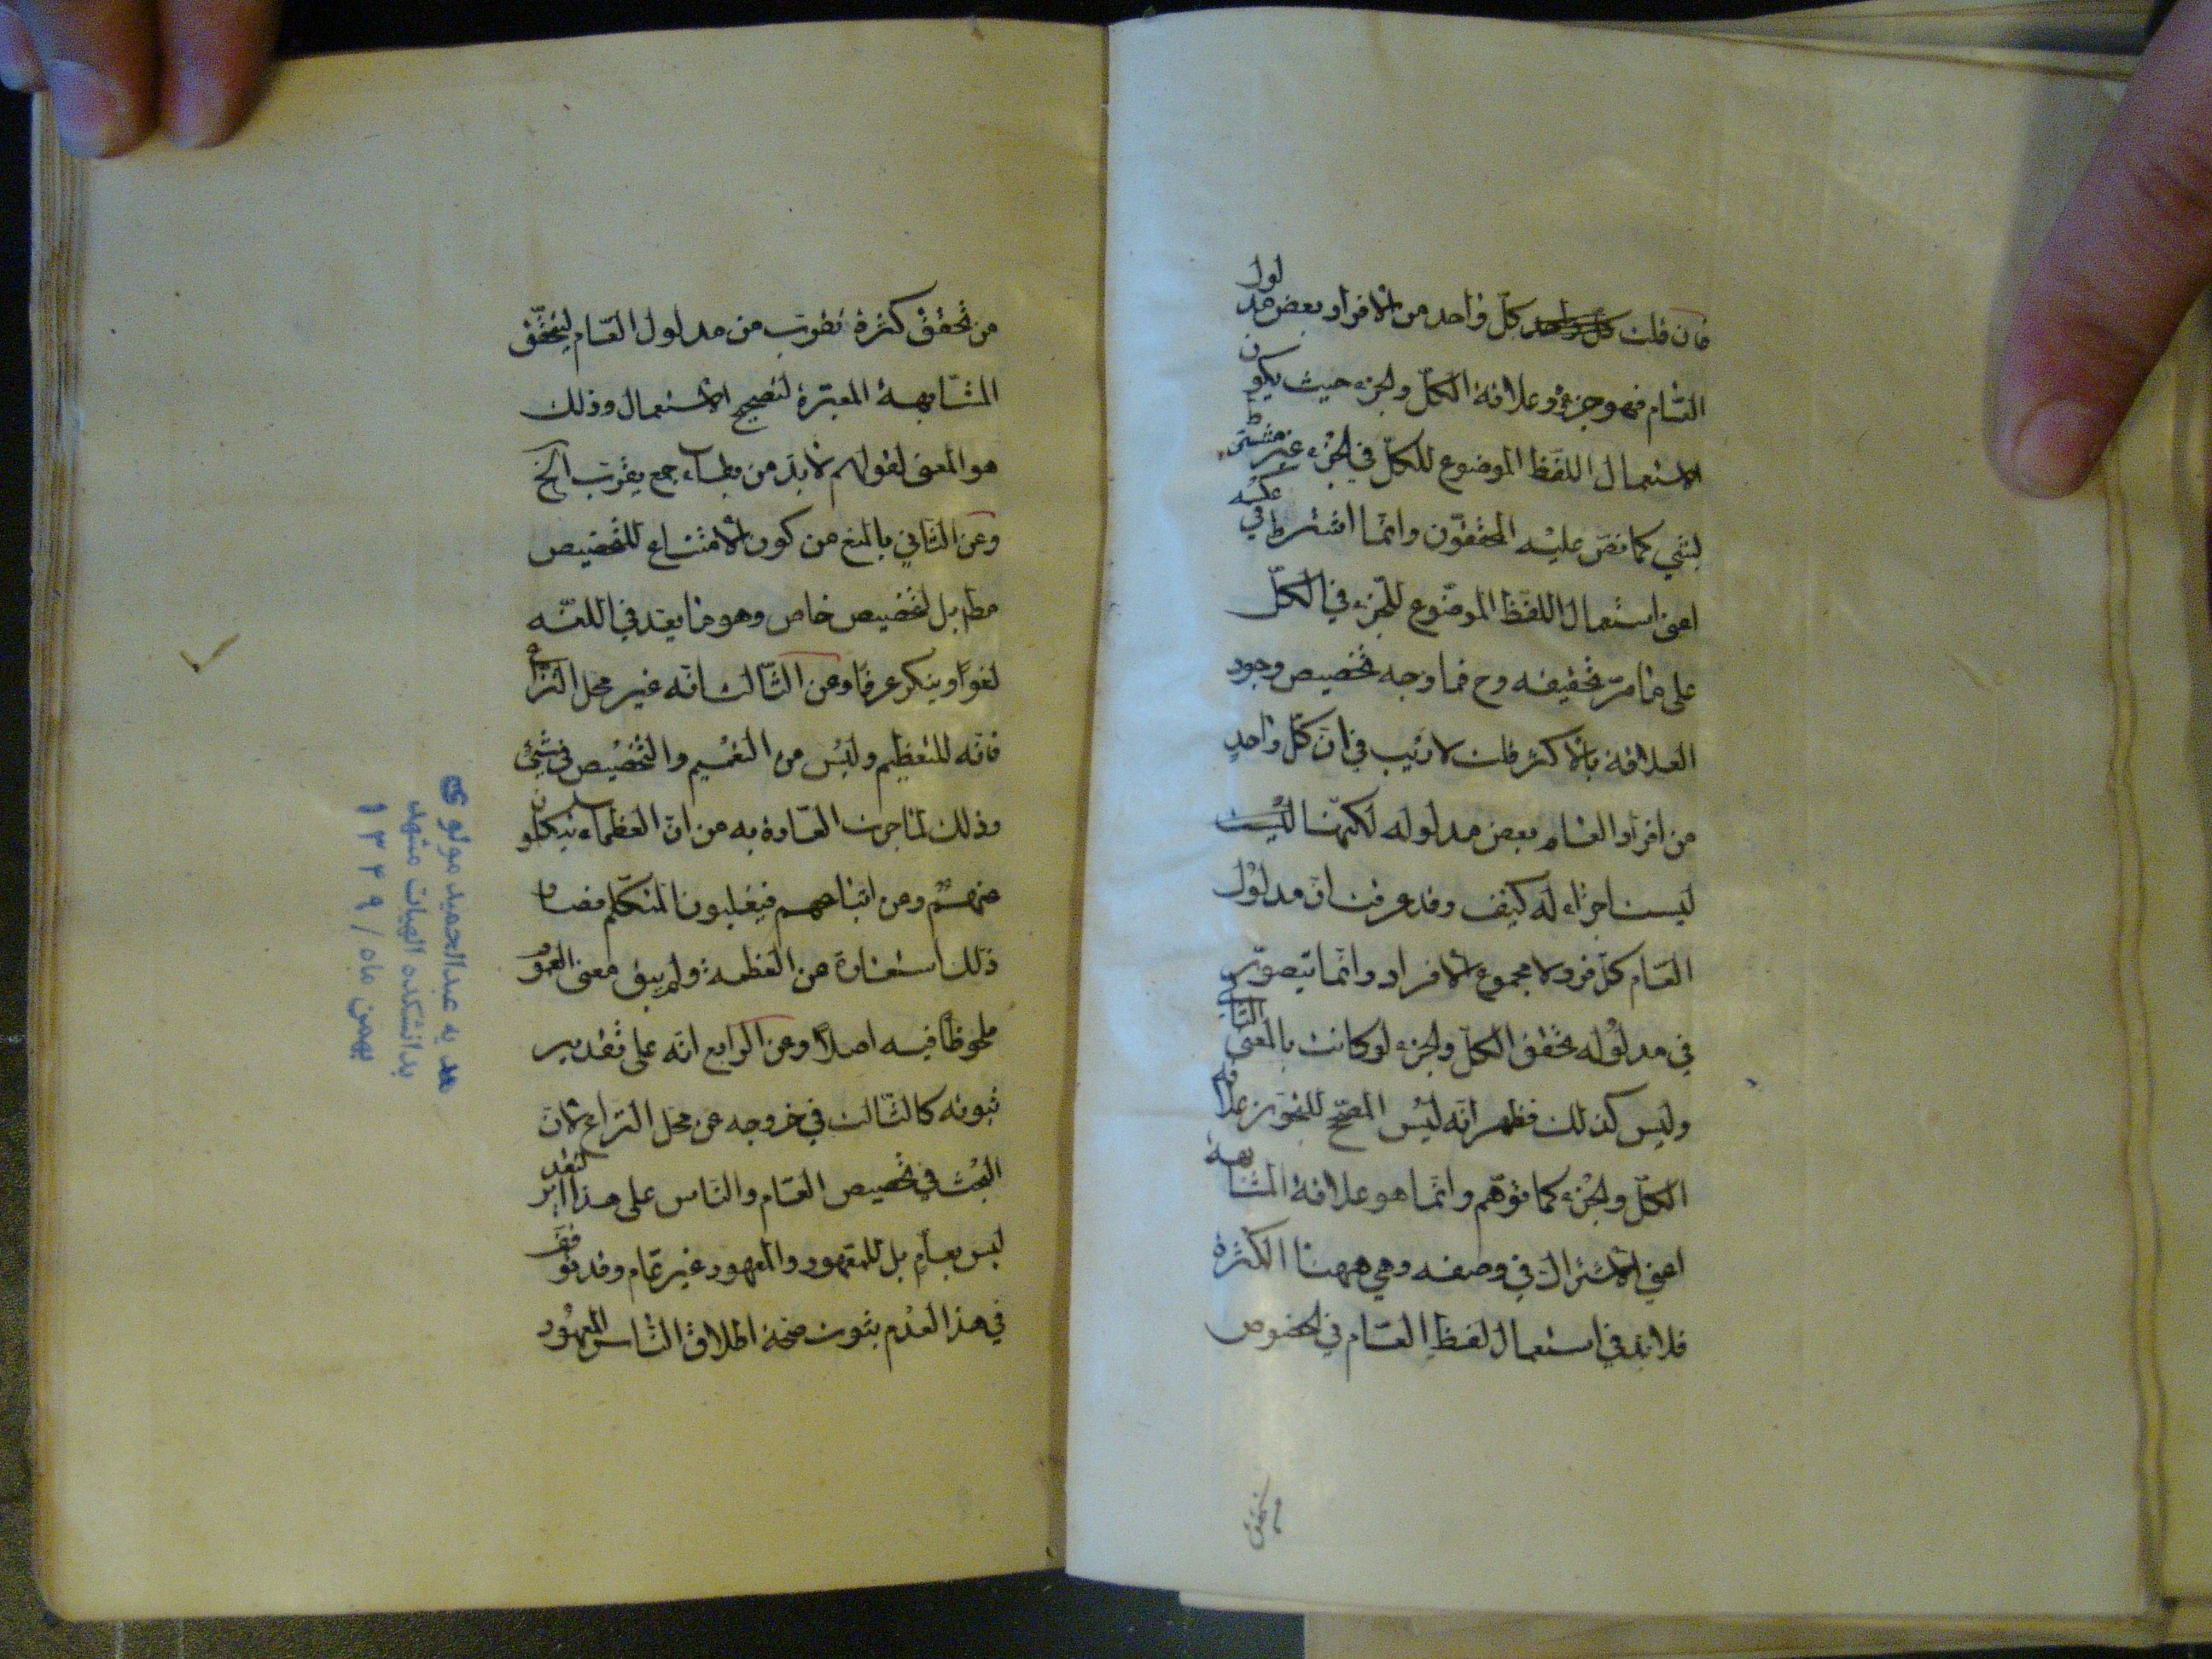 فان قلت كل واحد كلّ واحد من الافراد بعض مدلول
العام فهو جزؤه وعلاقة الكلّ والجزء حيث يكون
الاستعمال اللفظ الموضوع للكلّ في الجزء غير مشترط
بشي كما نصّ عليه المحققون وانّما اشترط في عكسه
اعنى استعمال اللفظ الموضوع للجزء في الكلّ
على ما مرّ تحقيقه وح فما وجه تخصيص وجود
العلاقة بالاكثر قلت لا ريب في انّ كلّ واحد
من افراد العام بعض مدلوله لكنّها ليست
ليست اجزاء له كيف وقد عرفت انّ مدلول
العام كلّ فرد لا مجموع الافراد وانّما يتصوّر
في مدلوله تحقق الكلّ والجزء لو كانت بالمعنى الثاني
وليس كذلك فظهر انّه ليس المصحّح للتجوّز علاقة
الكلّ والجزء كما توهّم وانّما هو علاقة المشابهة
اعنى الاشتراك في وصفه وهي ههنا الكثرة
فلابدّ في استعمال لفظ العام في الخصوص
من تحقق
من تحقق كثرة تقرب من مدلول العام ليتحقّق
المشابهة المعتبرة لتصحيح الاستعمال وذلك
هو المعنى لقولهم لابدّ من بقاء جمع يقرب الخ
وعن الثاني بالمنع من كون الامتناع للتخصيص
مطم بل لتخصيص خاص وهو ما يعد في اللغة
لغوًا وينكر عرفًا وعن الثالث انّه غير محل النزاع
فانّه للتعظيم وليس من التعميم والتخصيص في شيئ
وذلك لما جرت العادة به من انّ العظماء يتكلّمون
عنهم وعن اتباعهم فيغلبون المتكلّم فصار
ذلك استعارة عن العظمة ولم يبق معنى العموم
ملحوظًا فيه اصلًا وعن الرابع انّه على تقدير
ثبوته كالثالث في خروجه عن محل النزاع لانّ
البحث في تخصيص العام والناس على هذا التقدير
ليس بعام بل للمعهود والمعهود غير عام وقد توقف
في هذا لعدم ثبوت صحّة اطلاق الناس المعهود
هديه عبدالحميد مولوى
بدانشكده الهيات مشهد
بهمن ماه / ١٣٤٩